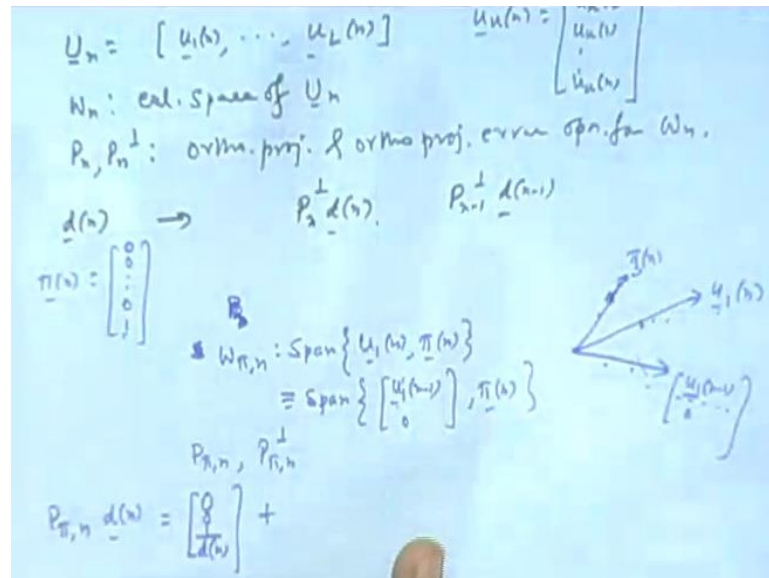 U_n = [ u_1(n), ⋯, u_L(n) ]   u_k(n) = [ u_k(1) ⋮ u_k(n) ]
W_n : col. space of U_n
P_n, P_n^⊥ : ortho. proj. & ortho proj. error opn. for W_n.
d(n) → P_n^⊥ d(n).   P_{n-1}^⊥ d(n-1)
π(n) = [ 0 0 ⋮ 0 1 ]   π(n)
u_1(n)
W_{π,n} : Span { u_1(n), π(n) }
≡ Span { [ u_1(n-1) 0 ], π(n) }   [ u_1(n-1) 0 ]
P_{π,n}, P_{π,n}^⊥
P_{π,n} d(n) = [ 0 d(n) ] +